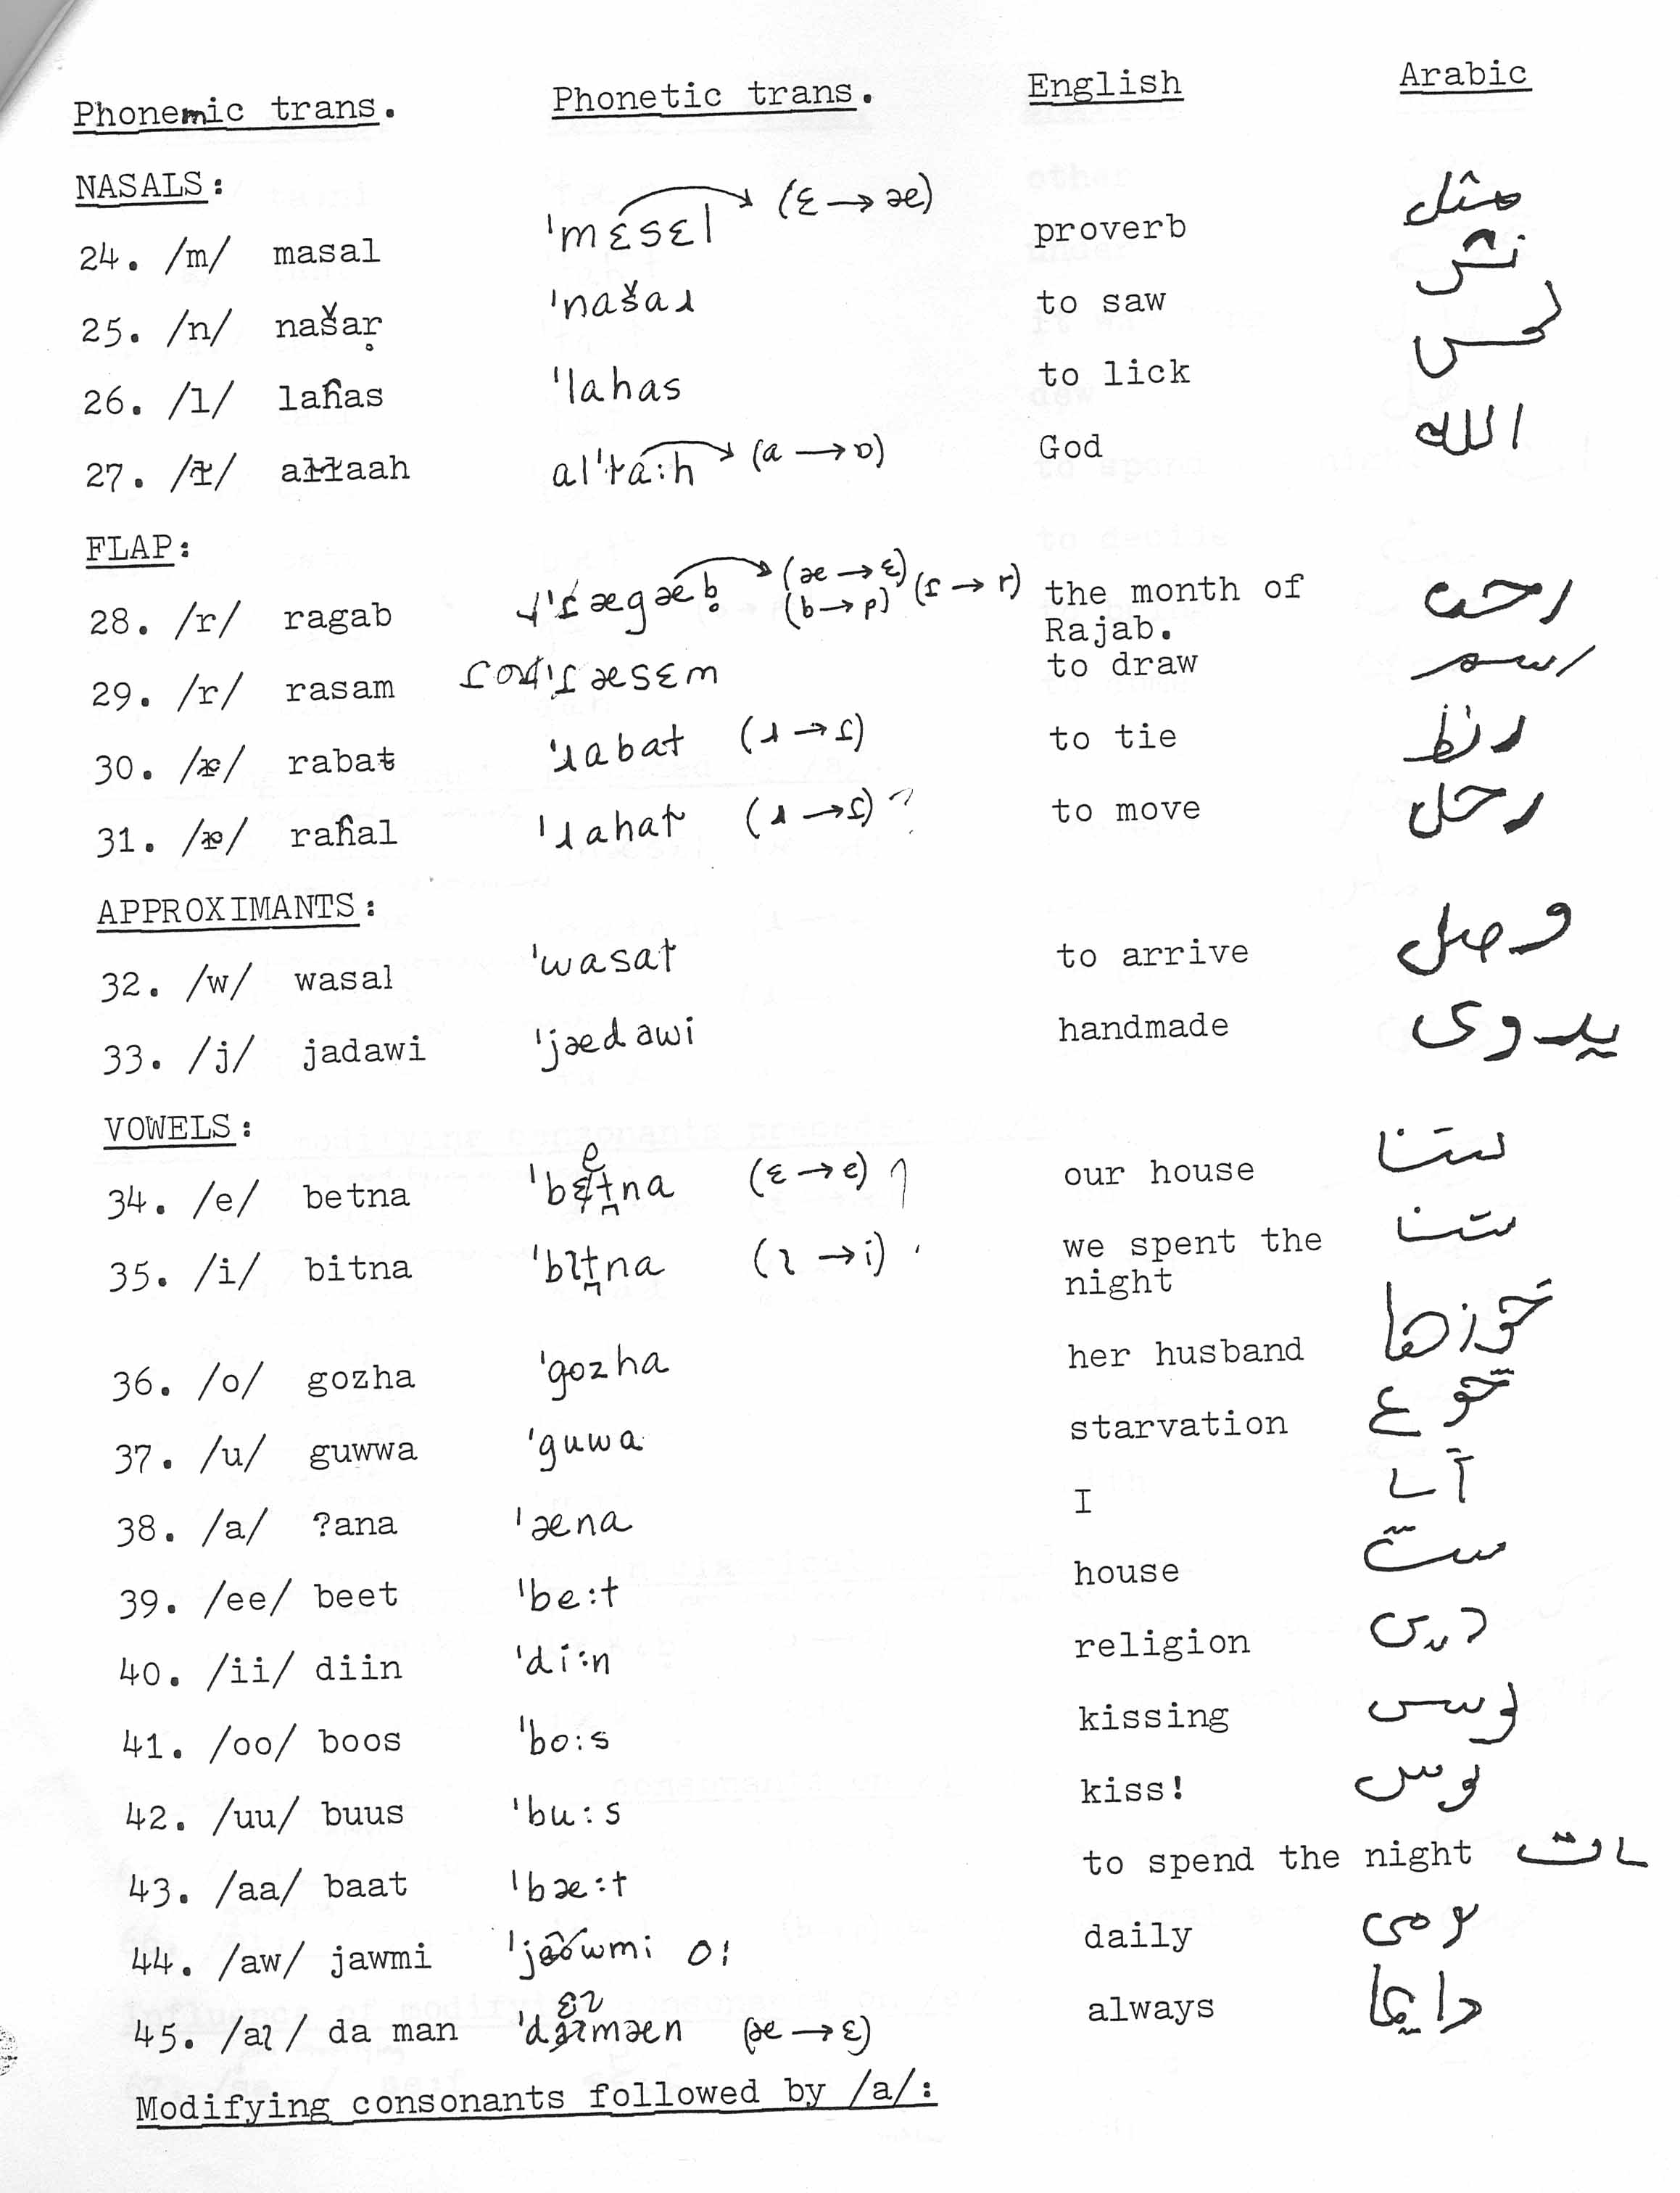 Phonemic trans. Phonetic trans. English Arabic
NASALS:
24. /m/ masal 'mɛsɛl (ɛ → æ) proverb مثل
25. /n/ našaṛ 'našaɹ to saw نشر
26. /l/ laɦas 'lahas to lick لحس
27. /ɫ/ aɫɫaah al'ɫa:h (a → ɒ) God الله
FLAP:
28. /r/ ragab 'ɾægæb̥ (æ → ɛ) (ɾ → r) the month of رجب
(b → p) Rajab.
29. /r/ rasam 'ɾæsɛm to draw رسم
30. /ᵲ/ rabaŧ 'ɹabat (ɹ → ɾ) to tie ربط
31. /ᵲ/ raɦal 'ɹahaɫ (ɹ → ɾ) ? to move رحل
APPROXIMANTS:
32. /w/ wasal 'wasaɫ to arrive وصل
33. /j/ jadawi 'jædawi handmade يدوى
VOWELS:
e
34. /e/ betna 'bɛt̪na (ɛ → e) ? our house بيتنا
35. /i/ bitna 'bɩt̪na (ɩ → i) we spent the بتنا
night
36. /o/ gozha 'gozha her husband جوزها
37. /u/ guwwa 'guwa starvation جوع
38. /a/ ?ana 'æna I أنا
39. /ee/ beet 'be:t house بيت
40. /ii/ diin 'di:n religion دين
41. /oo/ boos 'bo:s kissing بوس
42. /uu/ buus 'bu:s kiss! بوس
43. /aa/ baat 'bæ:t to spend the night بات
44. /aw/ jawmi daily يومى
ɛɩ
45. /aɩ/ da man (æ → ɛ) always دايما
Modifying consonants followed by /a/: